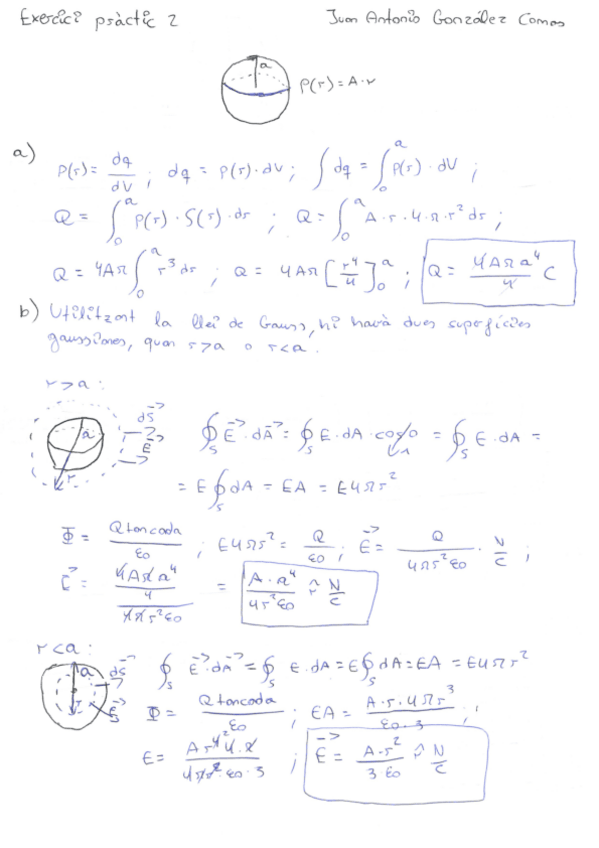 Exercici pràctic 2 Juan Antonio González Comas
a ρ(r) = A·r
a) ρ(r) = dq/dV ; dq = ρ(r)·dV ; ∫dq = ∫₀ᵃ ρ(r)·dV ;
Q = ∫₀ᵃ ρ(r)·S(r)·dr ; Q = ∫₀ᵃ A·r·4·π·r² dr ;
Q = 4Aπ ∫₀ᵃ r³ dr ; Q = 4Aπ [r⁴/4]₀ᵃ ; Q = 4Aπa⁴/4 C
b) Utilitzant la llei de Gauss, hi haurà dues superfícies
gaussianes, quan r>a o r<a.
r>a :
a r dS⃗ E⃗ ∮ₛ E⃗·dA⃗ = ∮ₛ E·dA·cos0 = ∮ₛ E·dA =
= E∮ₛ dA = EA = E4πr²
Φ = Qtancada/ε0 ; E4πr² = Q/ε0 ; E⃗ = Q/4πr²ε0 · N/C ;
E⃗ = (4Aπa⁴/4)/(4πr²ε0) = A·a⁴/4r²ε0 r̂ N/C
r<a :
a r dS⃗ E⃗ ∮ₛ E⃗·dA⃗ = ∮ₛ E·dA = E∮ₛ dA = EA = E4πr²
Φ = Qtancada/ε0 ; EA = A·r·4πr³/ε0·3 ;
E = Ar⁴4·π/4πr²·ε0·3 ; E⃗ = A·r²/3·ε0 r̂ N/C